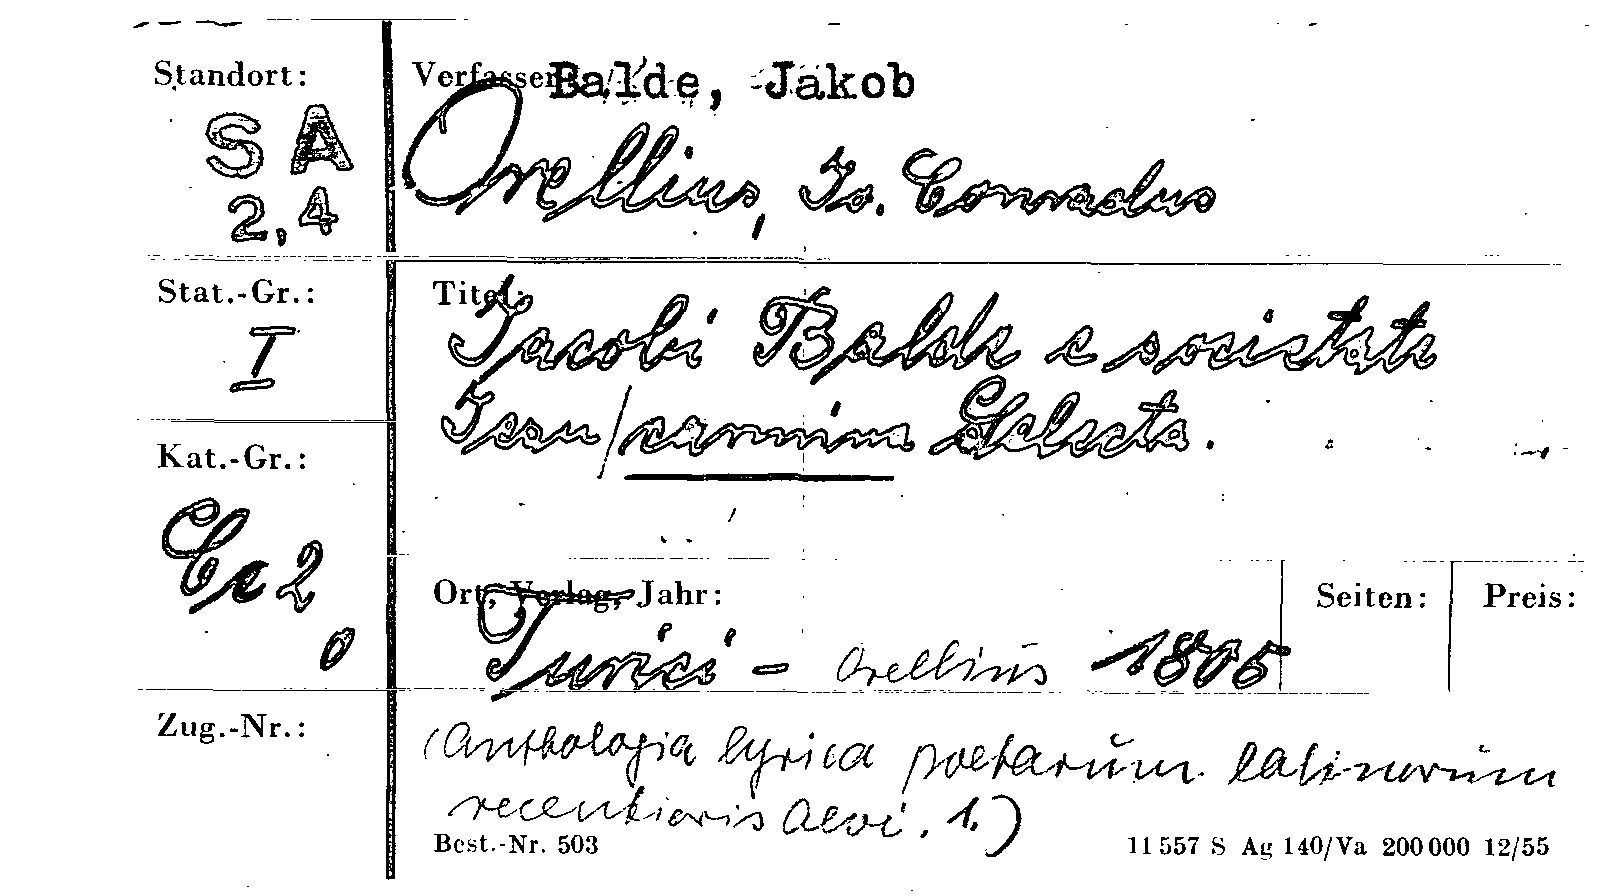 Standort:
SA
2,4
Verfasser:
Balde, Jakob
Orellius, Io. Conradus
Stat.-Gr.:
I
Titel:
Jacobi Balde e societate
Iesu / carmina Selecta.
Kat.-Gr.:
Cc 2
0
Ort, Verlag, Jahr:
Turici – Orellius 1805
Seiten:
Preis:
Zug.-Nr.:
(Anthologia lyrica poetarum latinorum
recentioris aevi. 1.)
Best.-Nr. 503
11557 S Ag 140/Va 200000 12/55